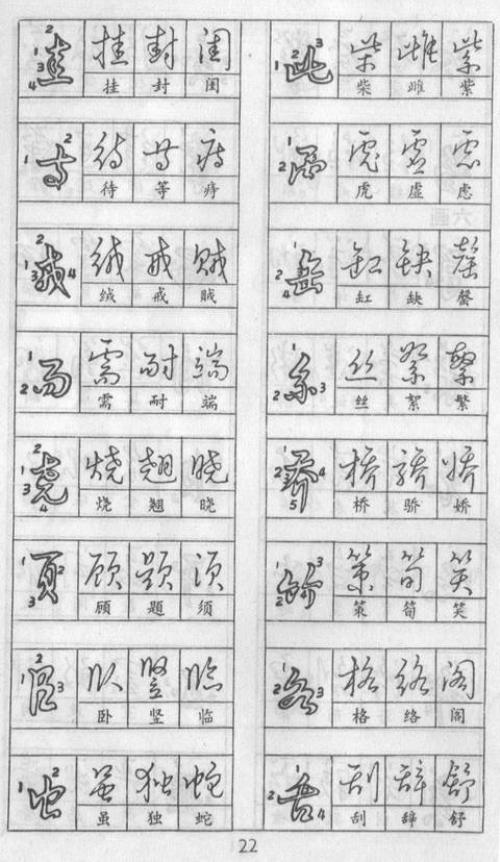 圭 挂 封 闺
挂 封 闺
寺 待 等 痔
待 等 痔
戎 绒 戒 贼
绒 戒 贼
而 需 耐 端
需 耐 端
尧 烧 翘 晓
烧 翘 晓
页 顾 题 须
顾 题 须
卧 坚 临
卧 坚 临
虫 虽 独 蛇
虽 独 蛇
此 柴 雌 紫
柴 雌 紫
虎 虚 虑
虎 虚 虑
缶 缸 缺 罄
缸 缺 罄
糸 丝 絮 繁
丝 絮 繁
乔 桥 骄 娇
桥 骄 娇
竹 策 筍 笑
策 筍 笑
各 格 络 阁
格 络 阁
舌 刮 辞 舒
刮 辞 舒
六画
22